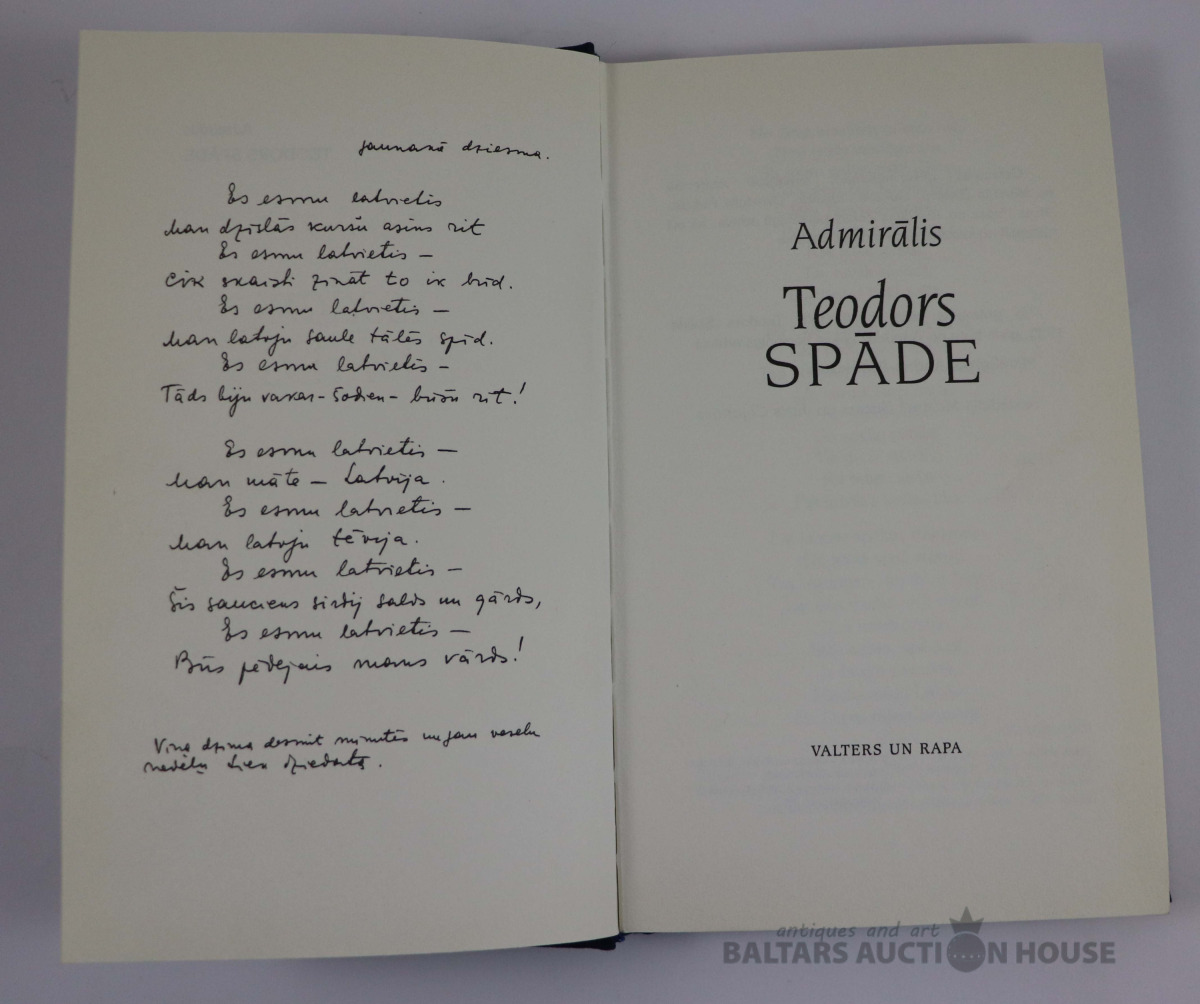 jaunākā dziesma.
Es esmu latvietis
Man dzislās kuršu asins rit
Es esmu latvietis —
Cik skaisti zināt to ik brīd.
Es esmu latvietis —
Man latvju saule tālēs spīd.
Es esmu latvietis —
Tāds biju vakar – šodien – būšu rit!
Es esmu latvietis —
Man māte — Latvija.
Es esmu latvietis —
Man latvju tēvija.
Es esmu latvietis —
Šis sauciens sirdij salds un gārds,
Es esmu latvietis —
Būs pēdejais mans vārds!
Viņa dzima desmit minutēs un jau veselu
nedēļu tiek dziedata.
Admirālis
Teodors
SPĀDE
VALTERS UN RAPA
antiques and art
BALTARS AUCTION HOUSE